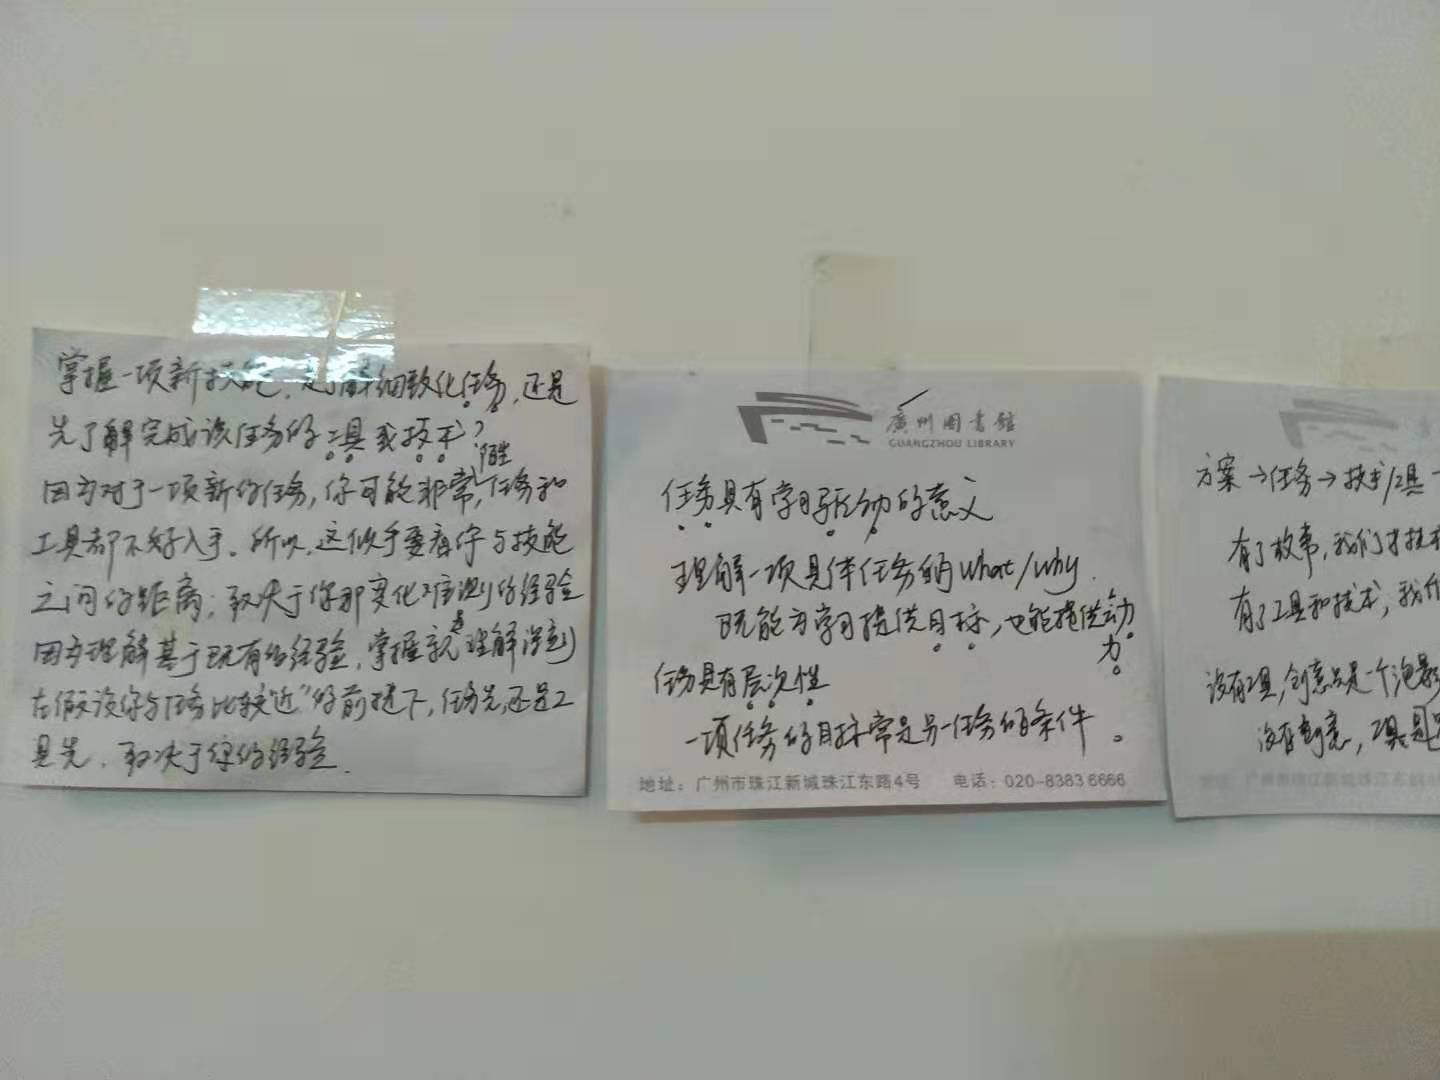 掌握一项新技能，是了解细致化任务，还是
先了解完成该任务的工具或技术？
因为对于一项新的任务，你可能非常陌生，任务和
工具都不好入手。所以，这似乎要看你与技能
之间的距离；取决于你那变化难测的经验
因为理解基于既有的经验，掌握就是理解深刻
在假设你与任务比较“近”的前提下，任务先，还是工
具先，取决于你的经验。
廣州圖書館
GUANGZHOU LIBRARY
任务具有学习驱动的意义
理解一项具体任务的what/why.
既能为学习提供目标，也能提供动力。
任务具有层次性
一项任务的目标常是另一任务的条件。
地址：广州市珠江新城珠江东路4号 电话：020-8383 6666
方案→任务→技术/工具
有了故事，我们才技
有了工具和技术，我们
没有工具，创意只是一个泡影
没有创意，工具是